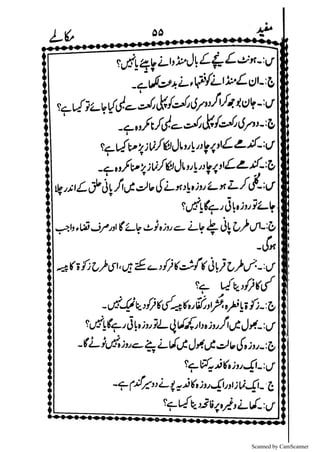 مفید ۵۵ مکالمے
س:۔ ہونٹ کے نیچے کے بال منڈوانے چاہیئے یا نہیں؟
ج:۔ ان کے منڈانے کو فقہاء نے بدعت لکھا ہے۔
س:۔ جان بوجھ کر اگر دوسری رکعت کو پہلی رکعت سے لمبی کیا جائے تو کیسا ہے؟
ج:۔ دوسری رکعت کو پہلی رکعت سے لمبی کرنا مکروہ ہے۔
س:۔ کندھے کے اوپر چادر یا رومال لٹکا کر نماز پڑھنا کیسا ہے؟
ج:۔ کندھے کے اوپر چادر یا رومال لٹکا کر نماز پڑھنا مکروہ ہے۔
س:۔ کلی کرتے ہوئے روزہ یاد ہونے کی حالت میں اگر پانی حلق کے اندر چلا
جائے تو روزہ باقی رہے گا یا نہیں؟
ج:۔ اس طرح پانی چلے جانے سے روزہ ٹوٹ جائے گا اور صرف قضاء واجب
ہوگی۔
س:۔ جس طرح قربانی کا گوشت کافر کو دے سکتے ہیں، اسی طرح زکوٰۃ کا پیسہ
کسی کافر کو دینا کیسا ہے؟
ج:۔ زکوٰۃ یا فطرہ، عشر اور کفارہ کا پیسہ کسی کافر کو دینا ٹھیک نہیں۔
س:۔ بھول میں اگر روزہ دار کچھ کھا پی لے تو روزہ باقی رہے گا یا نہیں؟
ج:۔ روزہ کی حالت میں بھول میں کھانے پینے سے روزہ نہیں ٹوٹے گا۔
س:۔ ایک روزہ کا فدیہ کتنا ہے؟
ج ۔ ایک نماز اور ایک روزہ کا فدیہ پونے دو سیر گندم ہے۔
س:۔ کھانے وغیرہ پر فاتحہ دینا کیسا ہے؟
Scanned by CamScanner